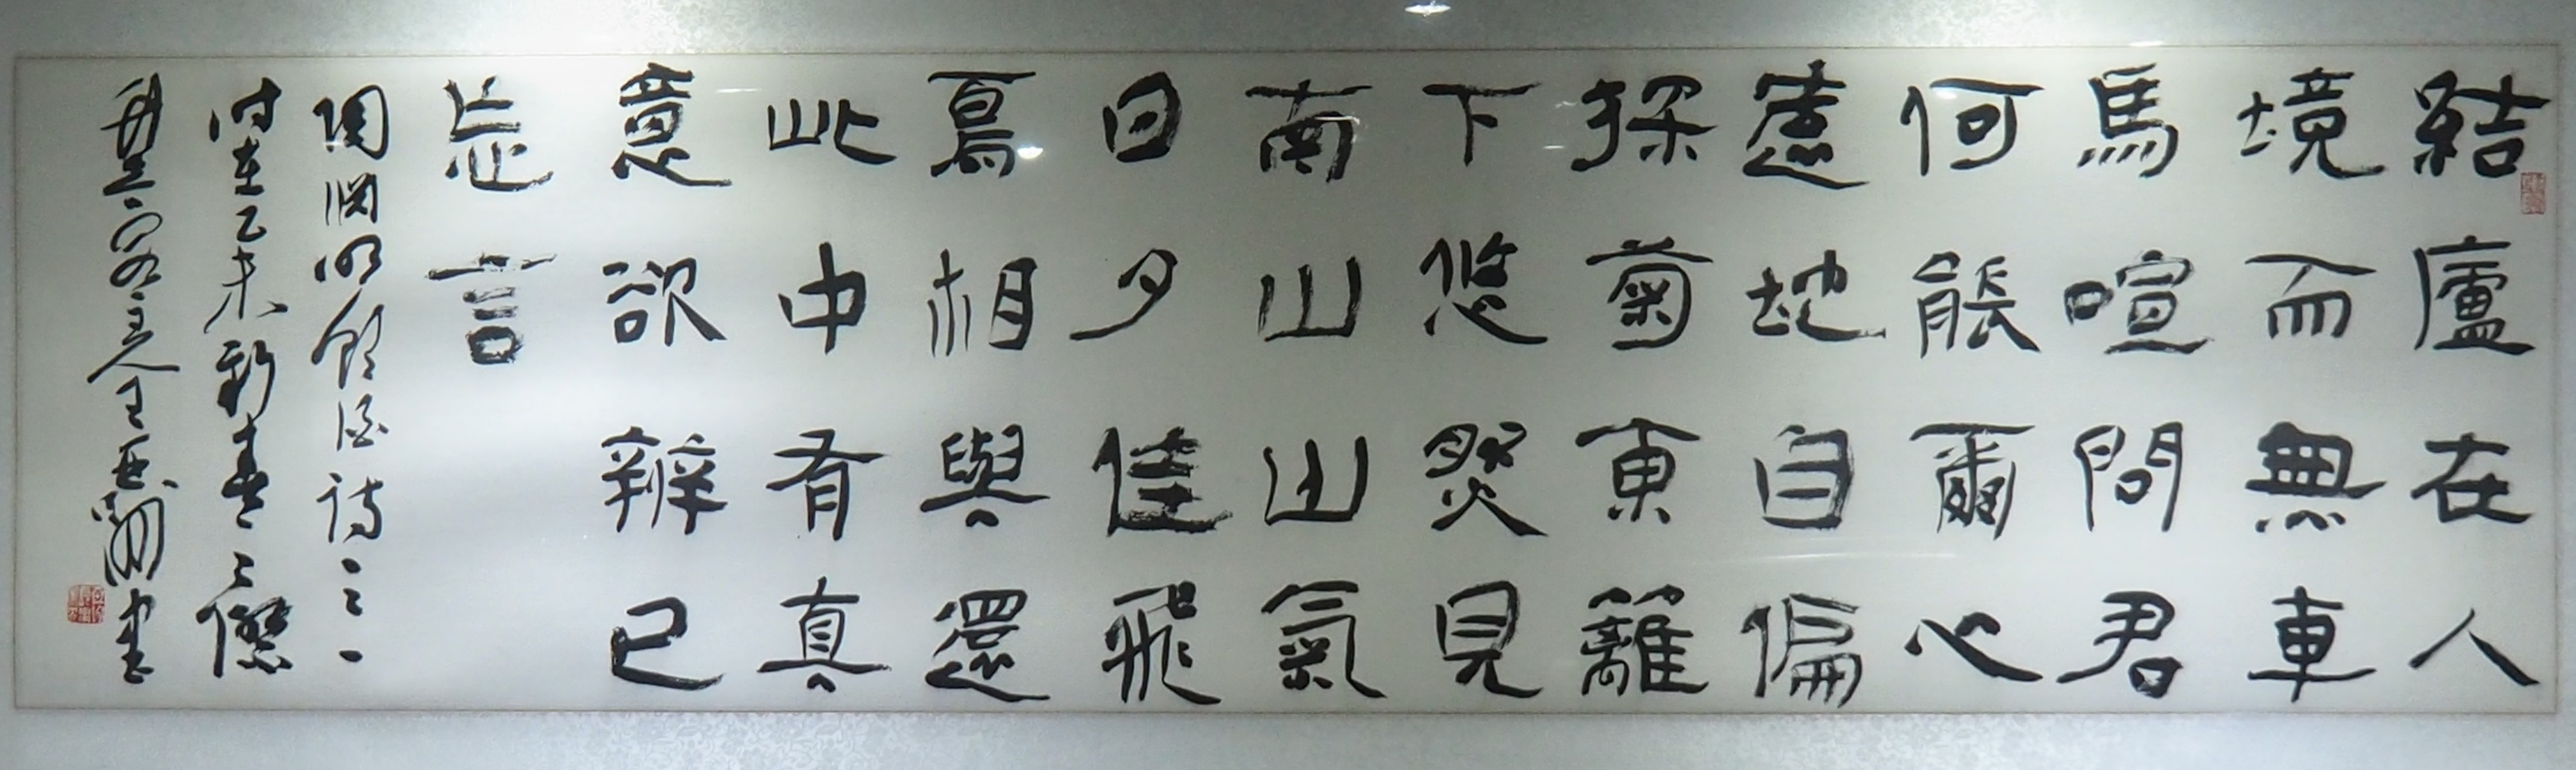 結廬在人
境而無車
馬喧問君
何能爾心
遠地自偏
採菊東籬
下悠然見
南山山氣
日夕佳飛
鳥相與還
此中有真
意欲辨已
忘言
陶淵明飲酒詩之一
時在乙未新春之際